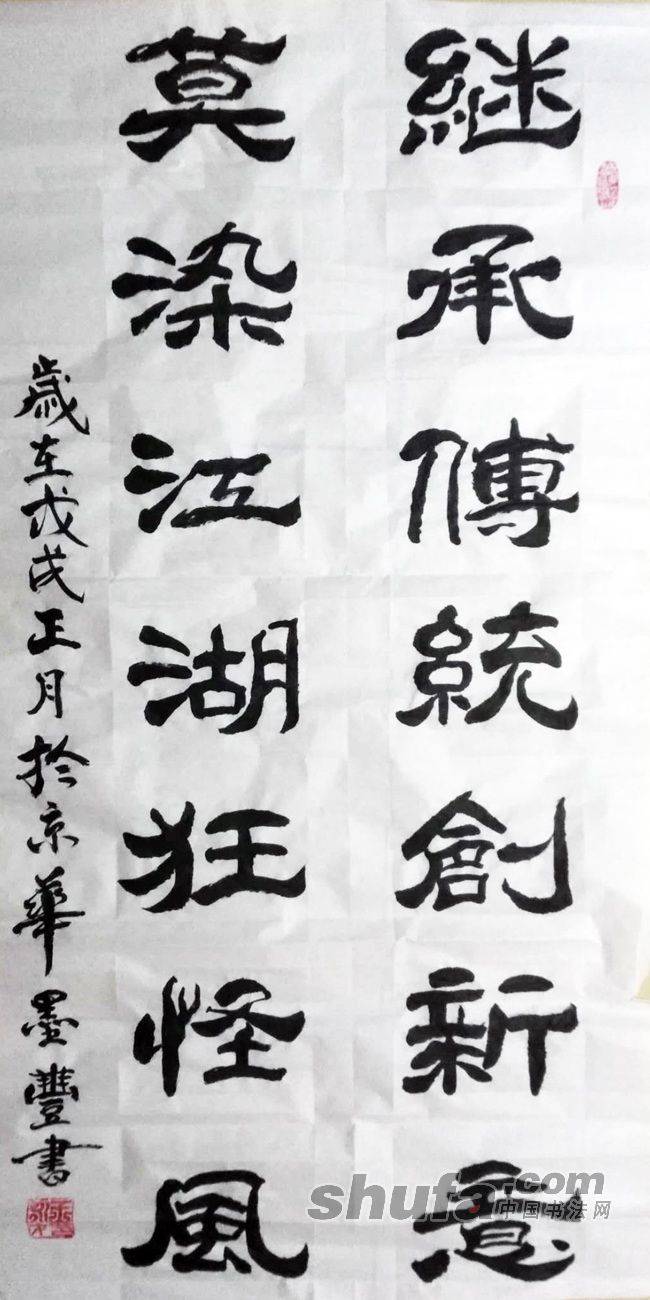 继承傳統創新意
莫染江湖狂怪風
歲在戊戌正月於京華墨豐書
shufa.com
中国书法网